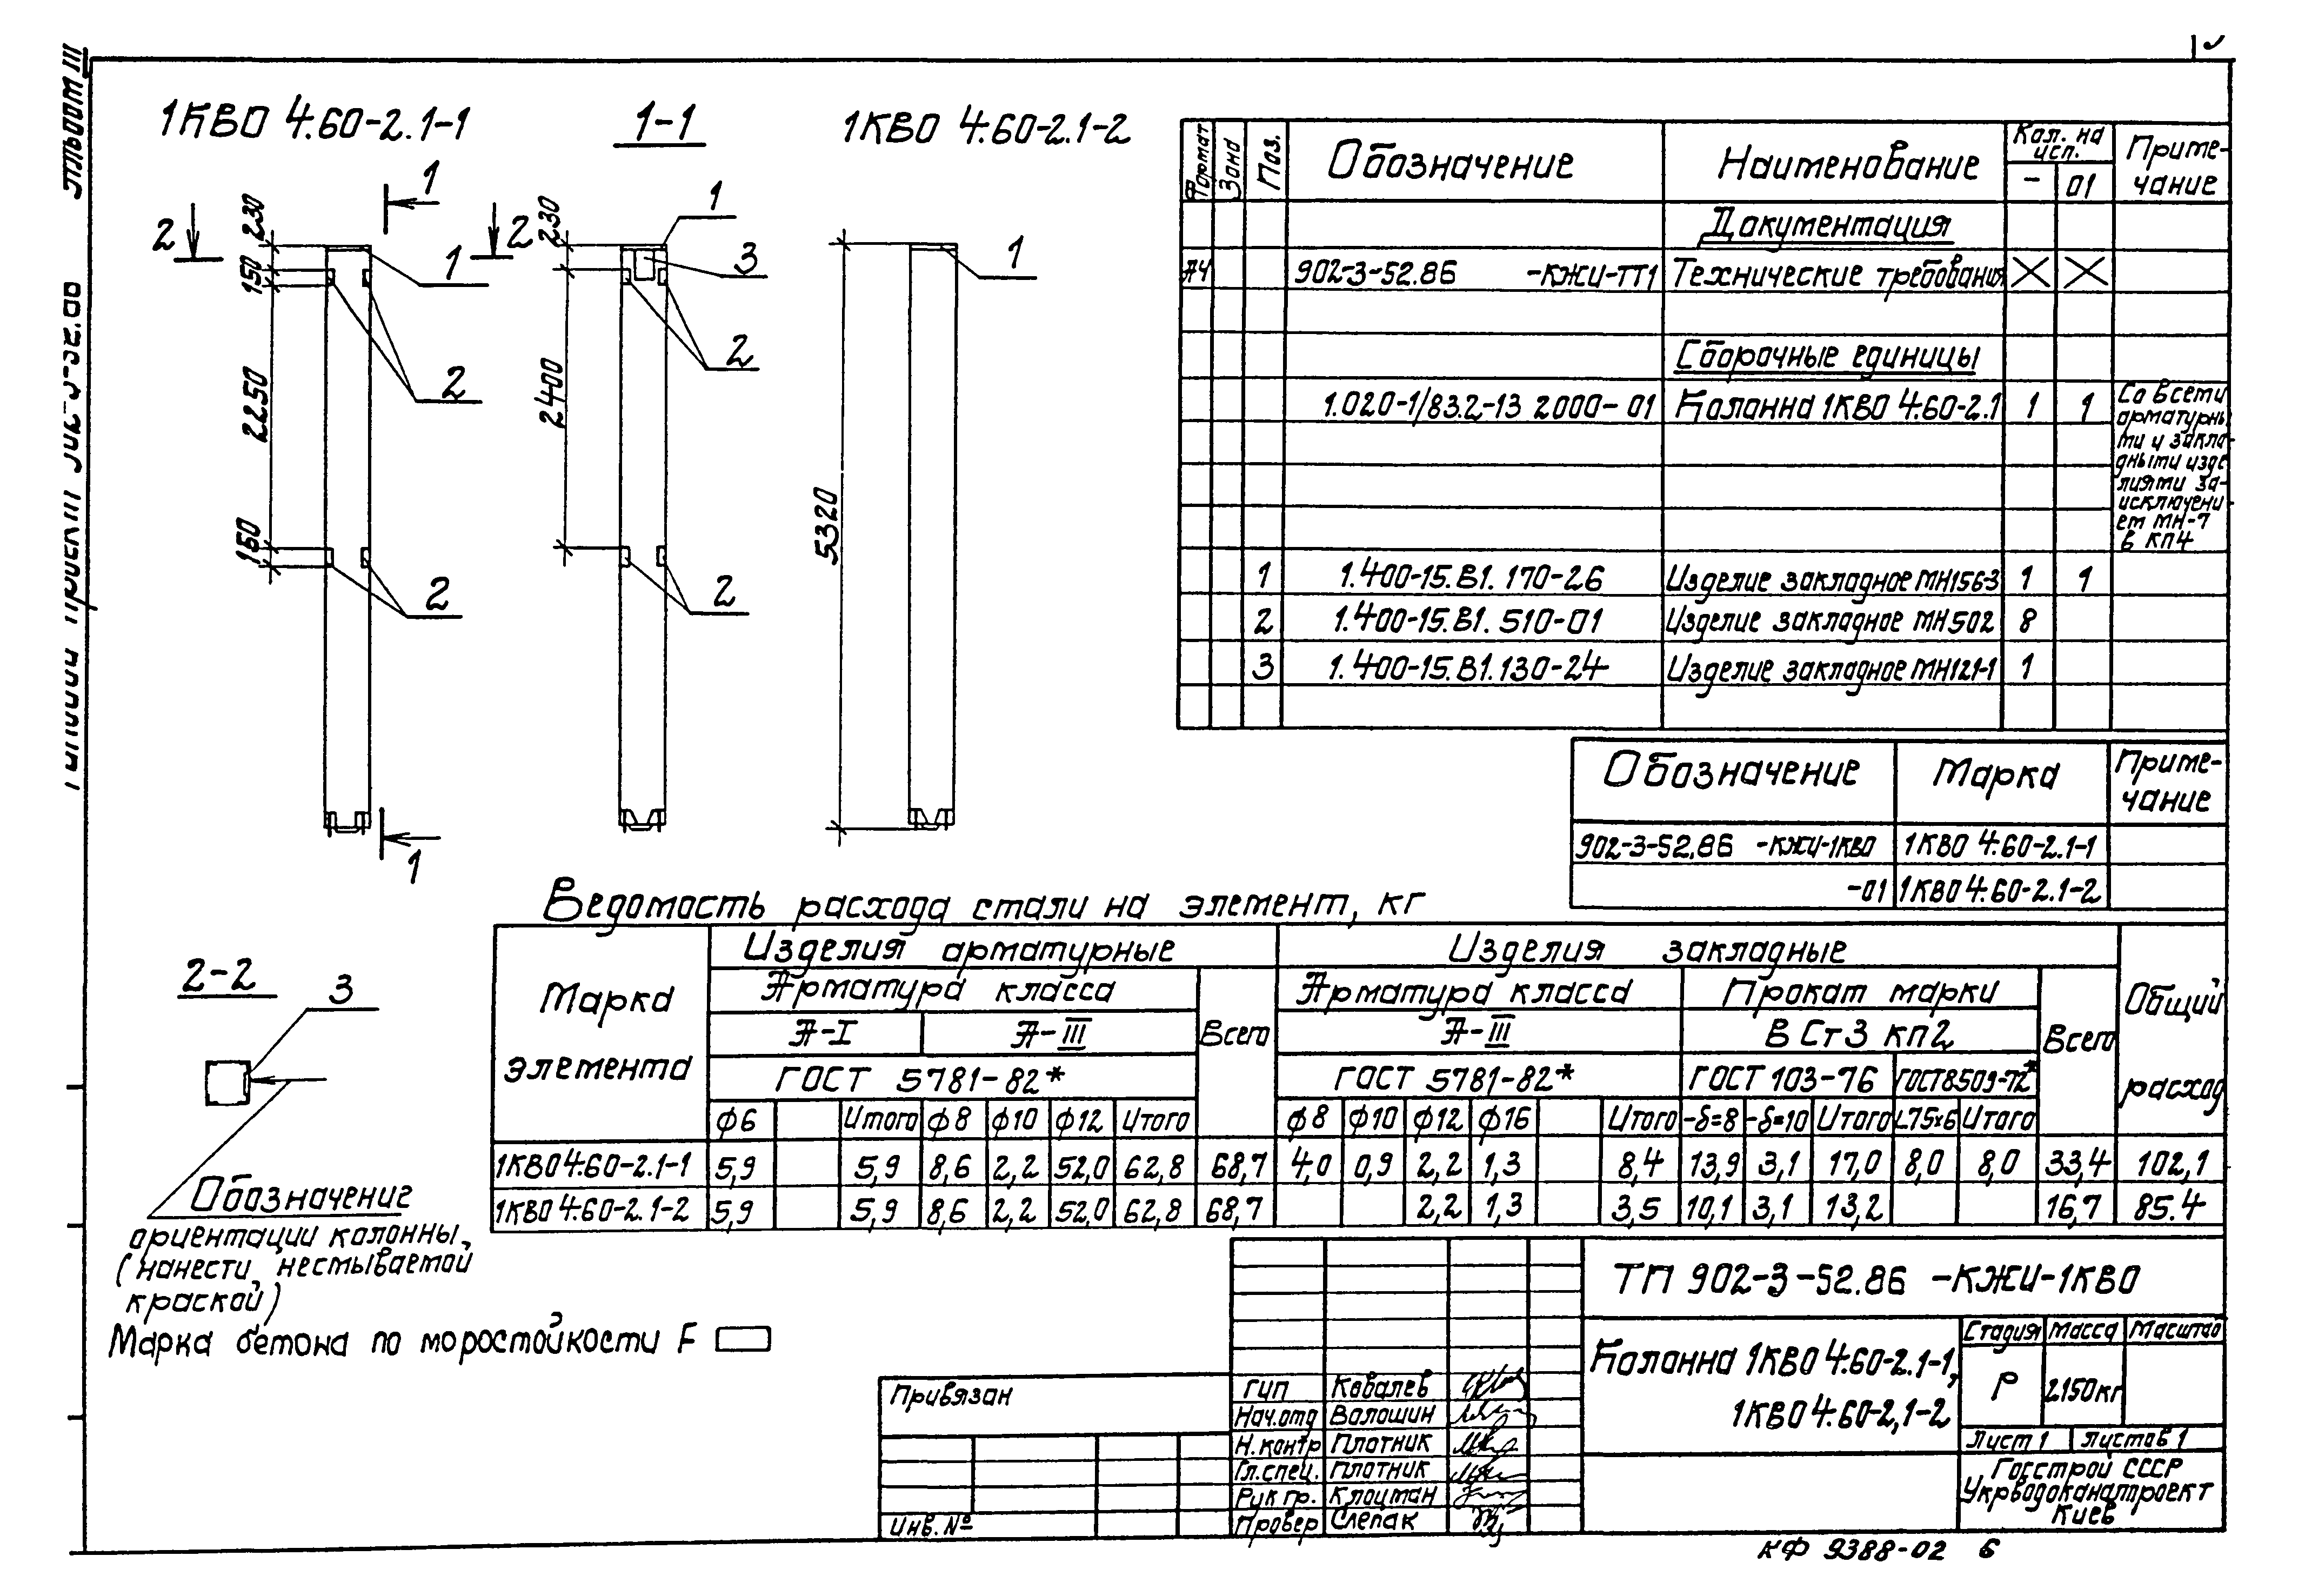 Альбом III
1КВО 4.60-2.1-1
1-1
1КВО 4.60-2.1-2
1
2
2
230
150
2250
150
1
2
2
1
230
2400
1
3
2
2
5320
1
Формат
Зона
Поз.
Обозначение
Наименование
Кол. на исп.
-
01
Приме-
чание
Документация
А4
902-3-52.86 -КЖИ-ТТ1
Технические требования
Сборочные единицы
1.020-1/83.2-13 2000-01
Колонна 1КВО 4.60-2.1
1
1
Со всеми
арматурны
ми и закла-
дными изде
лиями за-
исключени-
ем МН-7
в КП4
1
1.400-15.В1.170-26
Изделие закладное МН156-3
1
1
2
1.400-15.В1.510-01
Изделие закладное МН502
8
3
1.400-15.В1.130-24
Изделие закладное МН121-1
1
Обозначение
Марка
Приме-
чание
902-3-52.86 -КЖИ-1КВО
1КВО 4.60-2.1-1
-01
1КВО 4.60-2.1-2
Ведомость расхода стали на элемент, кг
Марка
элемента
Изделия арматурные
Изделия закладные
Общий
расход
Арматура класса
Всего
Арматура класса
Прокат марки
Всего
А-I
А-III
А-III
В Ст3 кп2
ГОСТ 5781-82*
ГОСТ 5781-82*
ГОСТ 103-76
ГОСТ8509-72*
ϕ6
Итого
ϕ8
ϕ10
ϕ12
Итого
ϕ8
ϕ10
ϕ12
ϕ16
Итого
-δ=8
-δ=10
Итого
L75х6
Итого
1КВО 4.60-2.1-1 5,9 5,9 8,6 2,2 52,0 62,8 68,7 4,0 0,9 2,2 1,3 8,4 13,9 3,1 17,0 8,0 8,0 33,4 102,1
1КВО 4.60-2.1-2 5,9 5,9 8,6 2,2 52,0 62,8 68,7 2,2 1,3 3,5 10,1 3,1 13,2 16,7 85.4
2-2
3
Обозначение
ориентации колонны
(нанести несмываемой
краской)
Марка бетона по моростойкости F
ТП 902-3-52.86 -КЖИ-1КВО
Колонна 1КВО 4.60-2.1-1,
1КВО 4.60-2,1-2
Стадия
Масса
Масштаб
Р
2150кг
Лист 1
Листов 1
Госстрой СССР
Укрводоканалпроект
Киев
Привязан
Инв. №
ГИП Ковалев
Нач.отд Волошин
Н.контр Плотник
Гл.спец. Плотник
Рук гр. Клоцман
Провер Слепак
КФ 9388-02 6